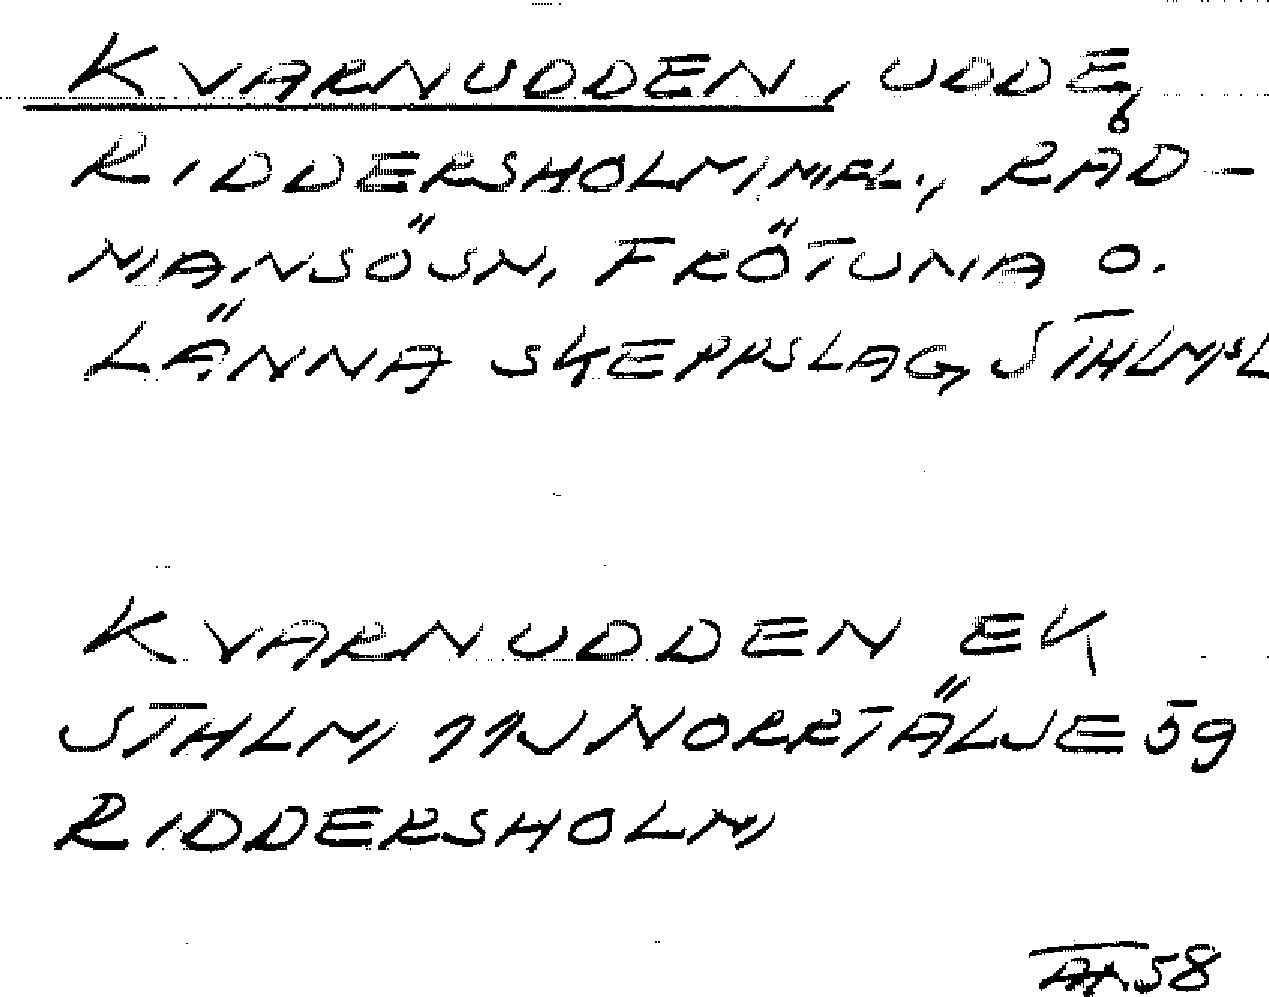 KVARNUDDEN, UDDE,
RIDDERSHOLM M.FL., RÅD-
MANSÖ SN, FRÖTUNA O.
LÄNNA SKEPPSLAG, STHLMS L
KVARNUDDEN EK
STHLM 11J NORRTÄLJE 59
RIDDERSHOLM
58